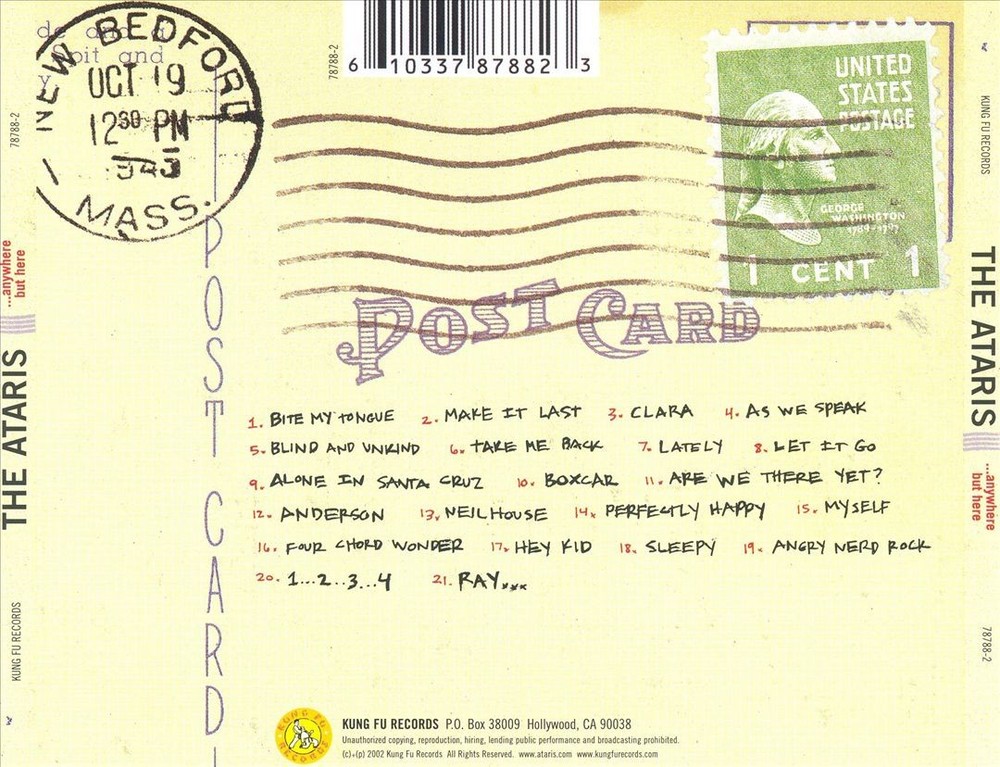 NEW BEDFORD
OCT 19
12 30 PM
MASS.
78788-2
6 10337 87882 3
UNITED
STATES
POSTAGE
GEORGE
WASHINGTON
1789-1797
1 CENT 1
POST CARD
POST CARD
1. BITE MY TONGUE 2. MAKE IT LAST 3. CLARA 4. AS WE SPEAK
5. BLIND AND UNKIND 6. TAKE ME BACK 7. LATELY 8. LET IT GO
9. ALONE IN SANTA CRUZ 10. BOXCAR 11. ARE WE THERE YET?
12. ANDERSON 13. NEILHOUSE 14. PERFECTLY HAPPY 15. MYSELF
16. FOUR CHORD WONDER 17. HEY KID 18. SLEEPY 19. ANGRY NERD ROCK
20. 1...2...3...4 21. RAY...
KUNG FU RECORDS P.O. Box 38009 Hollywood, CA 90038
Unauthorized copying, reproduction, hiring, lending public performance and broadcasting prohibited.
(c)+(p) 2002 Kung Fu Records All Rights Reserved. www.ataris.com www.kungfurecords.com
KUNG FU RECORDS
78788-2
...anywhere
but here
THE ATARIS
KUNG FU RECORDS
KUNG FU RECORDS
THE ATARIS
...anywhere
but here
78788-2